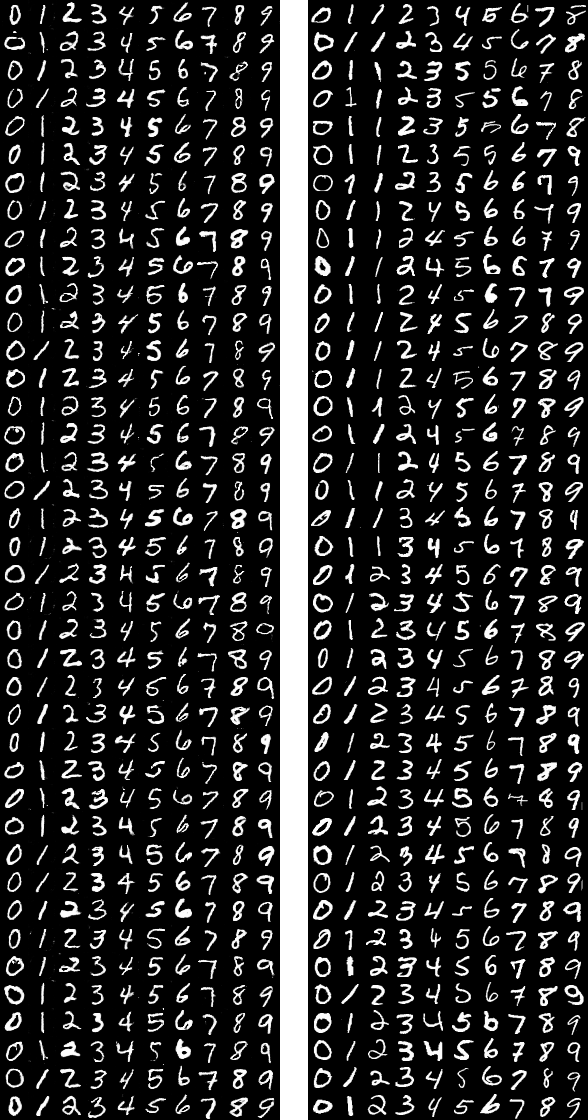 0 1 2 3 4 5 6 7 8 9
0 1 2 3 4 5 6 7 8 9
0 1 2 3 4 5 6 7 8 9
0 1 2 3 4 5 6 7 8 9
0 1 2 3 4 5 6 7 8 9
0 1 2 3 4 5 6 7 8 9
0 1 2 3 4 5 6 7 8 9
0 1 2 3 4 5 6 7 8 9
0 1 2 3 4 5 6 7 8 9
0 1 2 3 4 5 6 7 8 9
0 1 2 3 4 5 6 7 8 9
0 1 2 3 4 5 6 7 8 9
0 1 2 3 4 5 6 7 8 9
0 1 2 3 4 5 6 7 8 9
0 1 2 3 4 5 6 7 8 9
0 1 2 3 4 5 6 7 8 9
0 1 2 3 4 5 6 7 8 9
0 1 2 3 4 5 6 7 8 9
0 1 2 3 4 5 6 7 8 9
0 1 2 3 4 5 6 7 8 9
0 1 2 3 4 5 6 7 8 9
0 1 2 3 4 5 6 7 8 9
0 1 2 3 4 5 6 7 8 9
0 1 2 3 4 5 6 7 8 9
0 1 2 3 4 5 6 7 8 9
0 1 2 3 4 5 6 7 8 9
0 1 2 3 4 5 6 7 8 9
0 1 2 3 4 5 6 7 8 9
0 1 2 3 4 5 6 7 8 9
0 1 2 3 4 5 6 7 8 9
0 1 2 3 4 5 6 7 8 9
0 1 2 3 4 5 6 7 8 9
0 1 2 3 4 5 6 7 8 9
0 1 2 3 4 5 6 7 8 9
0 1 2 3 4 5 6 7 8 9
0 1 2 3 4 5 6 7 8 9
0 1 2 3 4 5 6 7 8 9
0 1 2 3 4 5 6 7 8 9
0 1 2 3 4 5 6 7 8 9
0 1 2 3 4 5 6 7 8 9
0 1 1 2 3 4 5 6 7 8
0 1 1 2 3 4 5 6 7 8
0 1 1 2 3 5 5 6 7 8
0 1 1 2 3 5 5 6 7 8
0 1 1 2 3 5 5 6 7 8
0 1 1 2 3 5 5 6 7 9
0 1 1 2 3 5 6 6 7 9
0 1 1 2 4 5 6 6 7 9
0 1 1 2 4 5 6 6 7 9
0 1 1 2 4 5 6 6 7 9
0 1 1 2 4 5 6 7 7 9
0 1 1 2 4 5 6 7 8 9
0 1 1 2 4 5 6 7 8 9
0 1 1 2 4 5 6 7 8 9
0 1 1 2 4 5 6 7 8 9
0 1 1 2 4 5 6 7 8 9
0 1 1 2 4 5 6 7 8 9
0 1 1 2 4 5 6 7 8 9
0 1 1 3 4 5 6 7 8 9
0 1 1 3 4 5 6 7 8 9
0 1 2 3 4 5 6 7 8 9
0 1 2 3 4 5 6 7 8 9
0 1 2 3 4 5 6 7 8 9
0 1 2 3 4 5 6 7 8 9
0 1 2 3 4 5 6 7 8 9
0 1 2 3 4 5 6 7 8 9
0 1 2 3 4 5 6 7 8 9
0 1 2 3 4 5 6 7 8 9
0 1 2 3 4 5 6 7 8 9
0 1 2 3 4 5 6 7 8 9
0 1 2 3 4 5 6 7 8 9
0 1 2 3 4 5 6 7 8 9
0 1 2 3 4 5 6 7 8 9
0 1 2 3 4 5 6 7 8 9
0 1 2 3 4 5 6 7 8 9
0 1 2 3 4 5 6 7 8 9
0 1 2 3 4 5 6 7 8 9
0 1 2 3 4 5 6 7 8 9
0 1 2 3 4 5 6 7 8 9
0 1 2 3 4 5 6 7 8 9